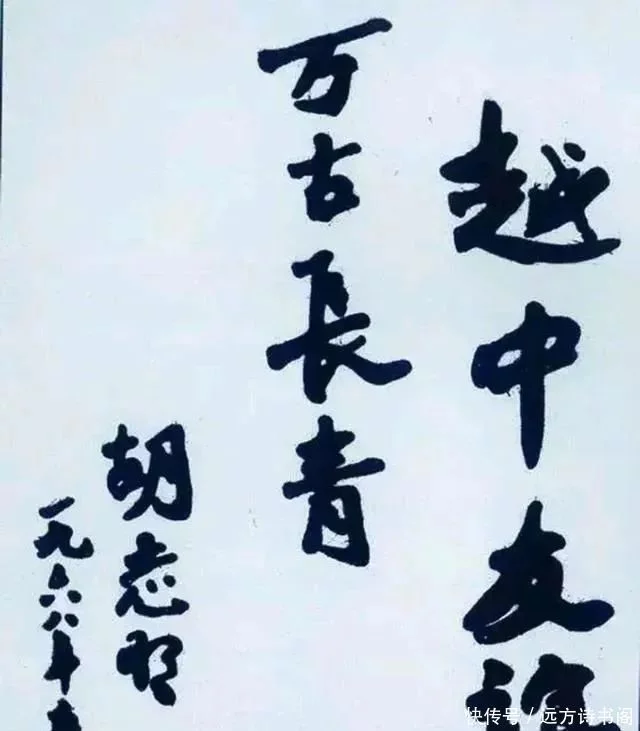 越中友
万古長青
胡志明
一九六八年
快传号/远方诗书阁